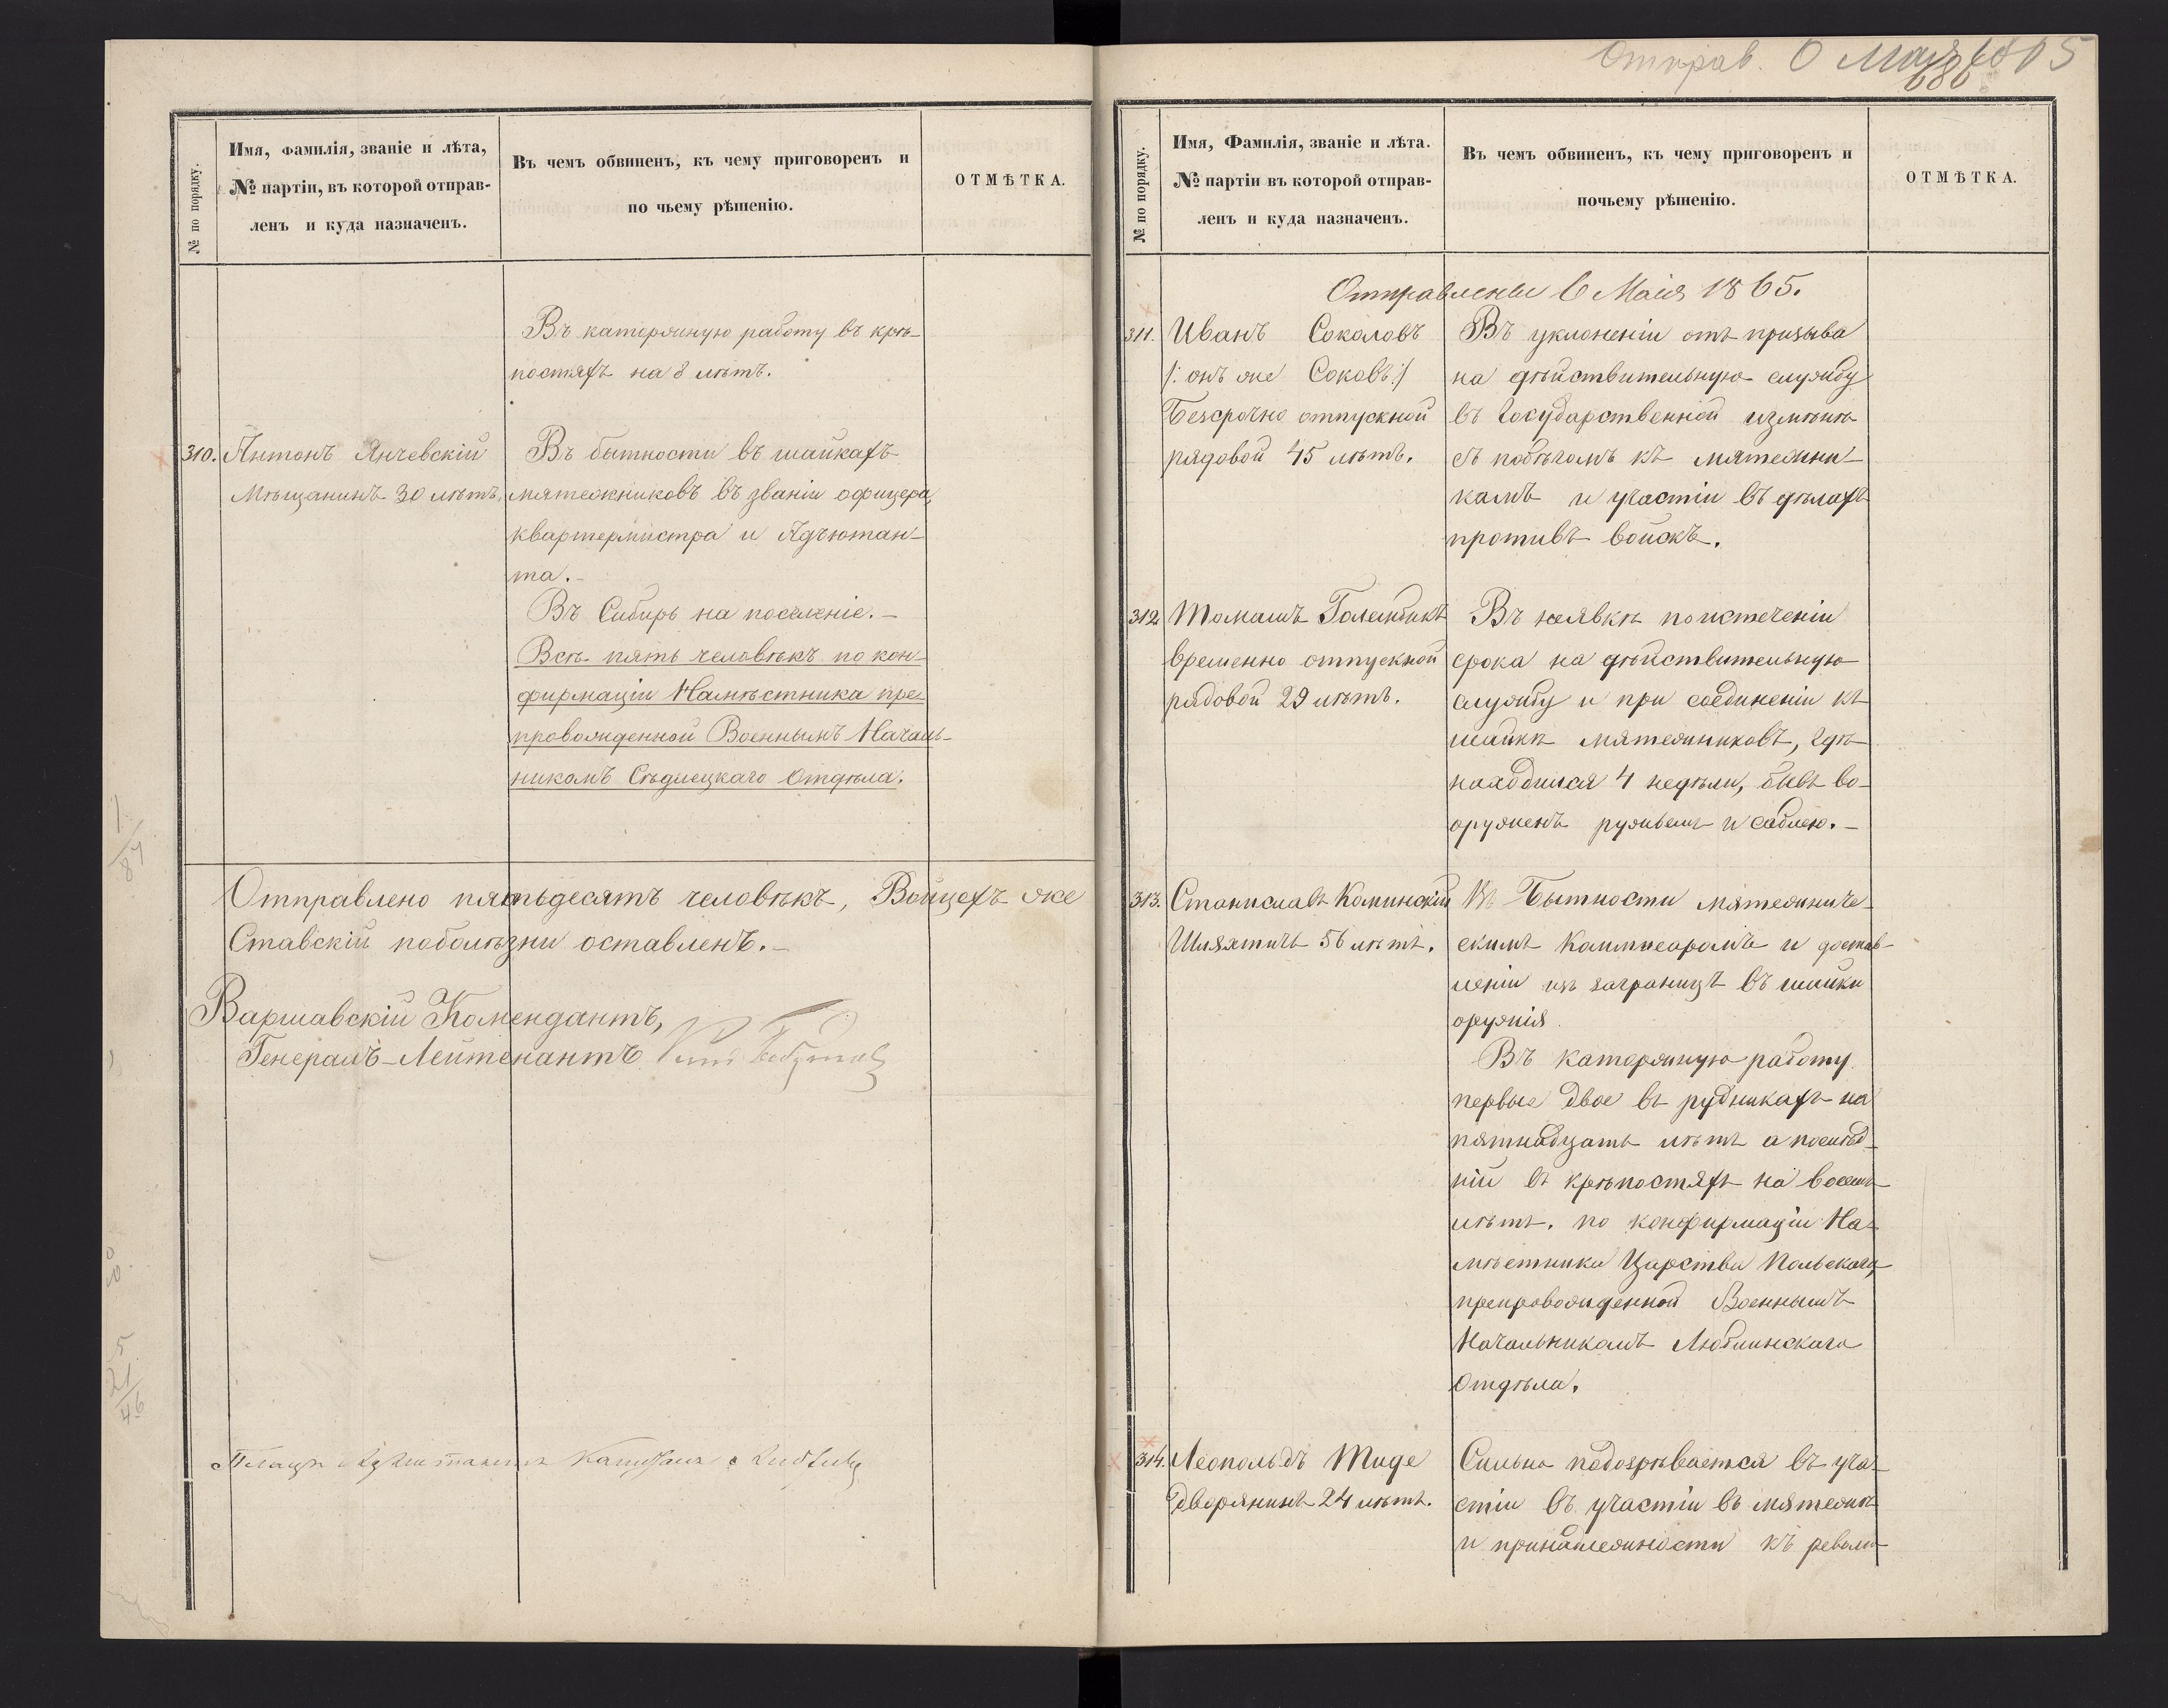 № по порядку.
Имя, Фамилія, званіе и лѣта,
№ партіи, въ которой отправ-
ленъ и куда назначенъ.
Въ чемъ обвиненъ, къ чему приговоренъ и
по чьему рѣшенію.
ОТМѢТКА.
Въ каторжную работу въ крѣ-
постяхъ на 8 лѣтъ.
310. Антонъ Янчевскій
Мѣщанинъ 30 лѣтъ,
Въ бытности въ шайкахъ
мятежниковъ въ званіи офицера,
квартермистра и Адъютан-
та.-
Въ Сибирь на поселеніе.-
Всѣ пять человѣкъ по кон-
фирмаціи Намѣстника пре-
провожденной Военнымъ Началь-
никомъ Сѣдлецкаго Отдѣла.
Отправлено пятьдесятъ человѣкъ, Войцехъ же
Ставскій поболѣзни оставленъ.-
Варшавскій Комендантъ,
Генералъ-Лейтенантъ
Плацъ Адъютантъ Капитанъ
1/87
5
21/46
Отправ. 6 Мая 1865
686
№ по порядку.
Имя, Фамилія, званіе и лѣта.
№ партіи въ которой отправ-
ленъ и куда назначенъ.
Въ чемъ обвиненъ, къ чему приговоренъ и
почьему рѣшенію.
ОТМѢТКА.
Отправлены 6 Маія 1865.
311. Иванъ Соколовъ
/: онъ же Соковъ:/
Безсрочно отпускной
рядовой 45 лѣтъ.
Въ уклоненіи отъ призыва
на дѣйствительную службу
въ Государственной измѣнѣ
съ побѣгомъ къ мятежни-
камъ и участіи въ дѣлахъ
противъ войскъ.
312. Томашъ Голембикъ
временно отпускной
рядовой 29 лѣтъ.
Въ неявкѣ поистеченіи
срока на дѣйствительную
службу и при соединеніи къ
шайкѣ мятежниковъ, гдѣ
находился 4 недѣли, бывъ во-
оруженъ ружьемъ и саблею.-
313. Станиславъ Каминскій
Шляхтичъ 56 лѣтъ.
Въ Бытности мятежниче-
скимъ Коммисаромъ и достав-
леніи изъ заграницъ въ шайки
оружія.
Въ каторжную работу
первые двое въ рудникахъ на
пятнадцать лѣтъ а послѣд-
ній въ крѣпостяхъ на восемь
лѣтъ. по конфирмаціи На-
мѣстника Царства Польскаго,
препровожденной Военнымъ
Начальникомъ Люблинскаго
Отдѣла.
314. Леопольдъ Тиде
Дворянинъ 24 лѣтъ.
Сильно подозрѣвается въ уча-
стіи въ участіи въ мятежѣ
и принадлежности къ револю-